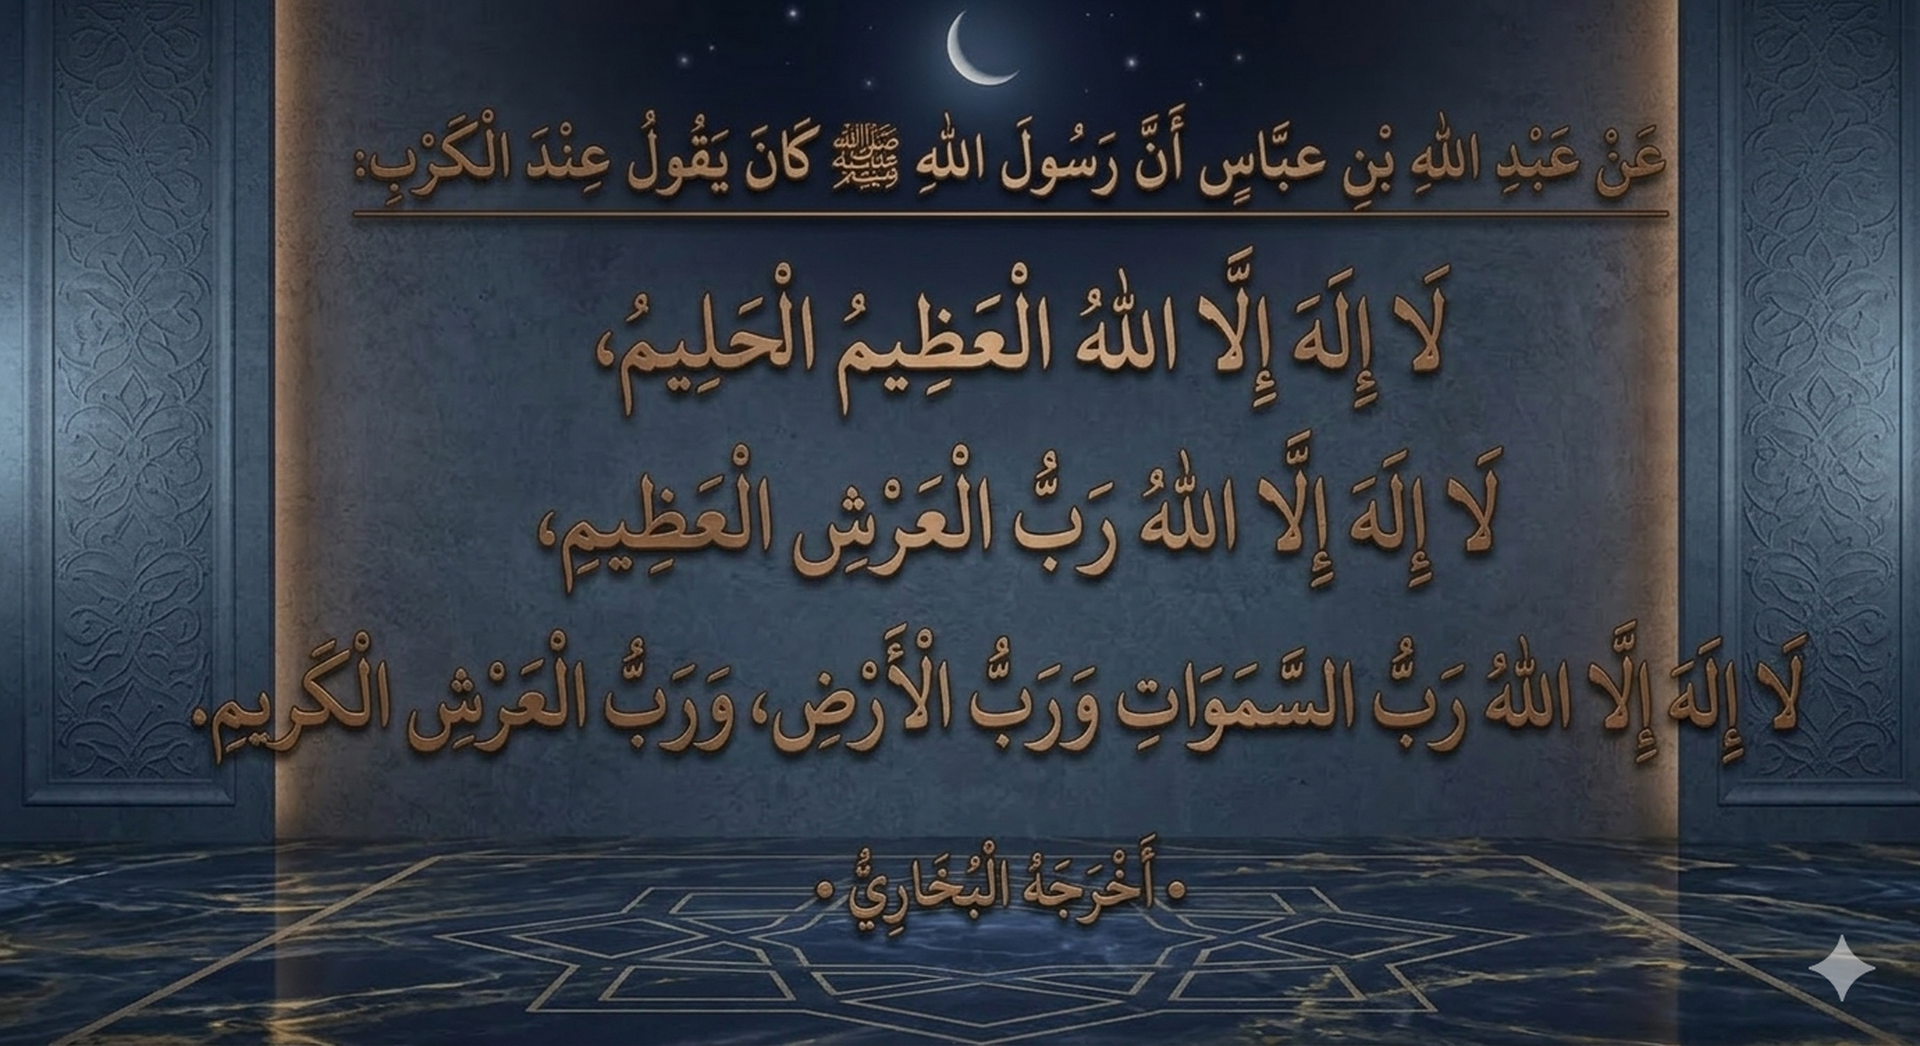 عَنْ عَبْدِ اللهِ بْنِ عبَّاسٍ أَنَّ رَسُولَ اللهِ ﷺ كَانَ يَقُولُ عِنْدَ الْكَرْبِ:
لَا إِلَهَ إِلَّا اللهُ الْعَظِيمُ الْحَلِيمُ،
لَا إِلَهَ إِلَّا اللهُ رَبُّ الْعَرْشِ الْعَظِيمِ،
لَا إِلَهَ إِلَّا اللهُ رَبُّ السَّمَوَاتِ وَرَبُّ الْأَرْضِ، وَرَبُّ الْعَرْشِ الْكَرِيمِ.
• أَخْرَجَهُ الْبُخَارِيُّ •